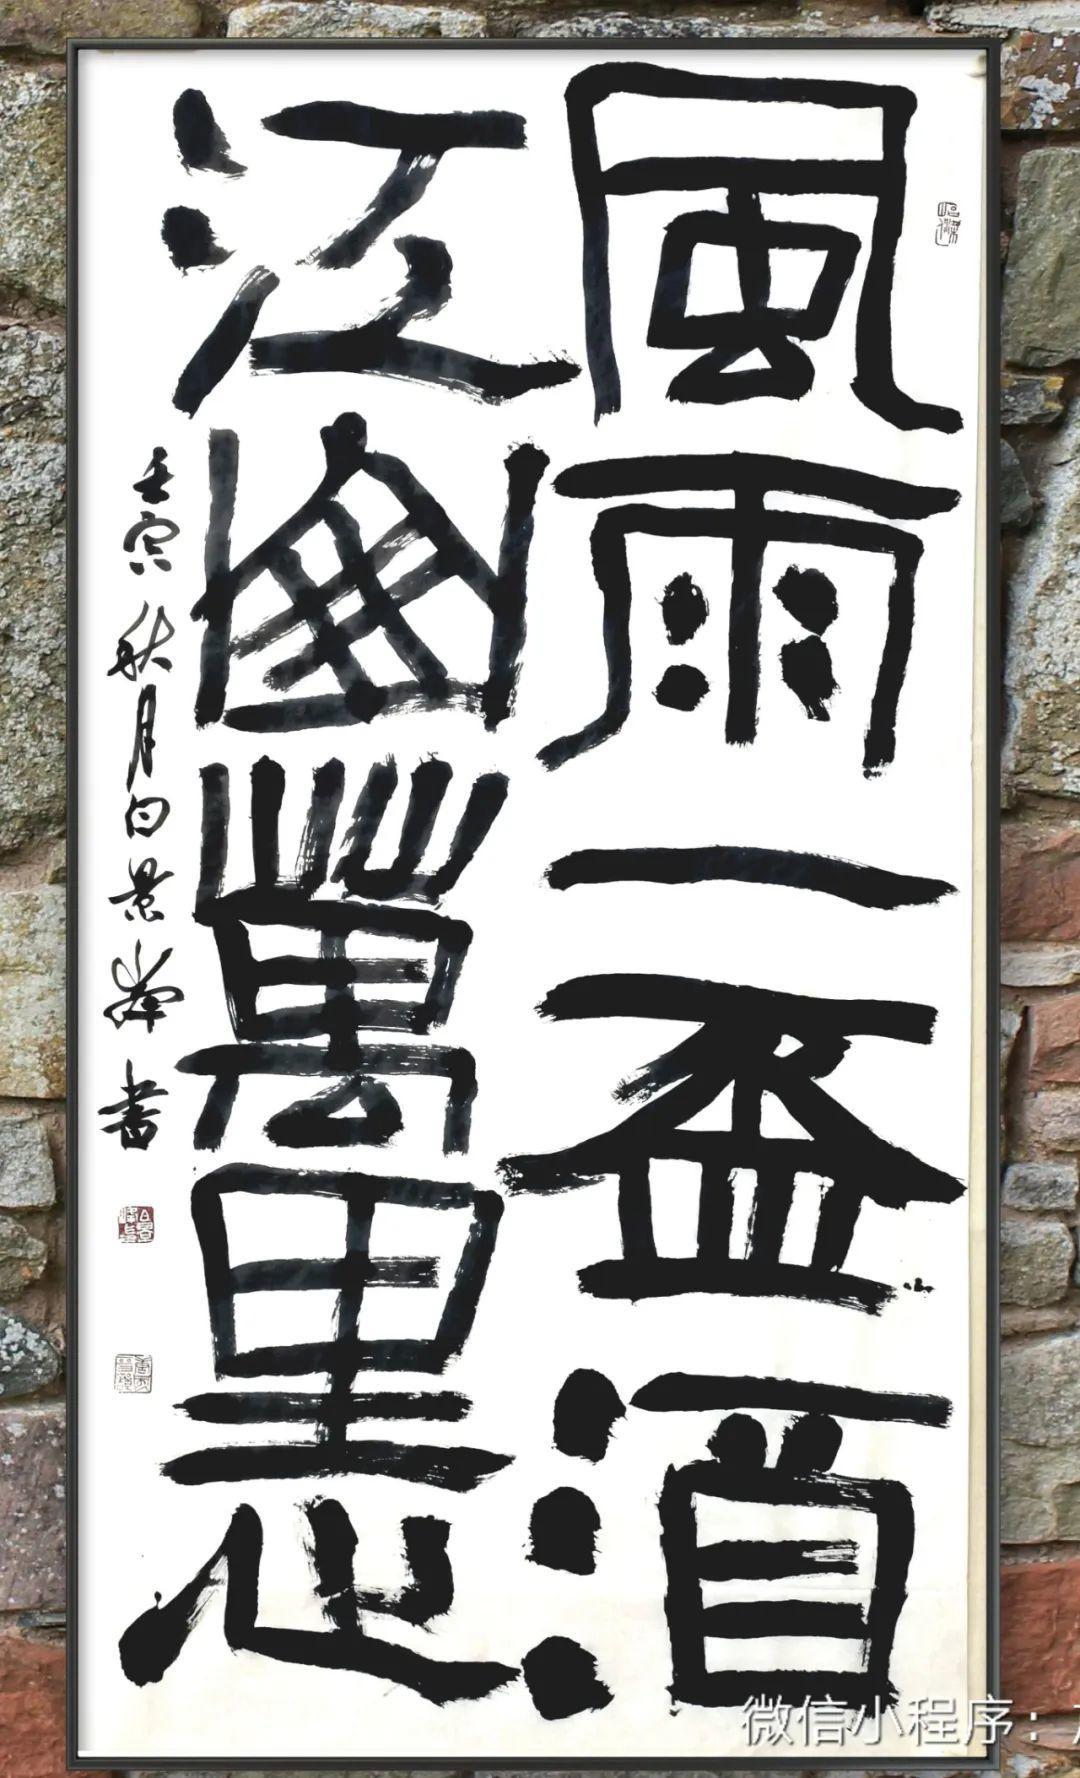 風雨一盃酒
江山萬里心
壬寅秋月白景峯書
微信小程序：